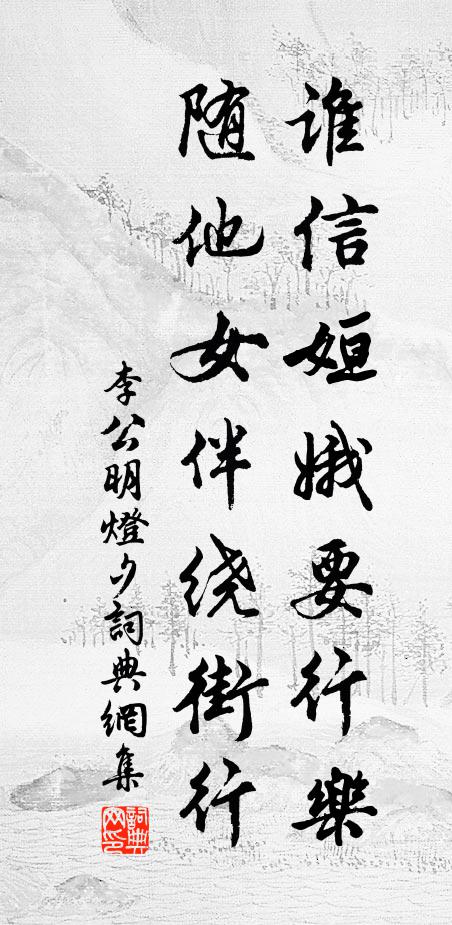 谁信姮娥要行樂
随他女伴绕街行
李公明燈夕詞典網集
詞典網印